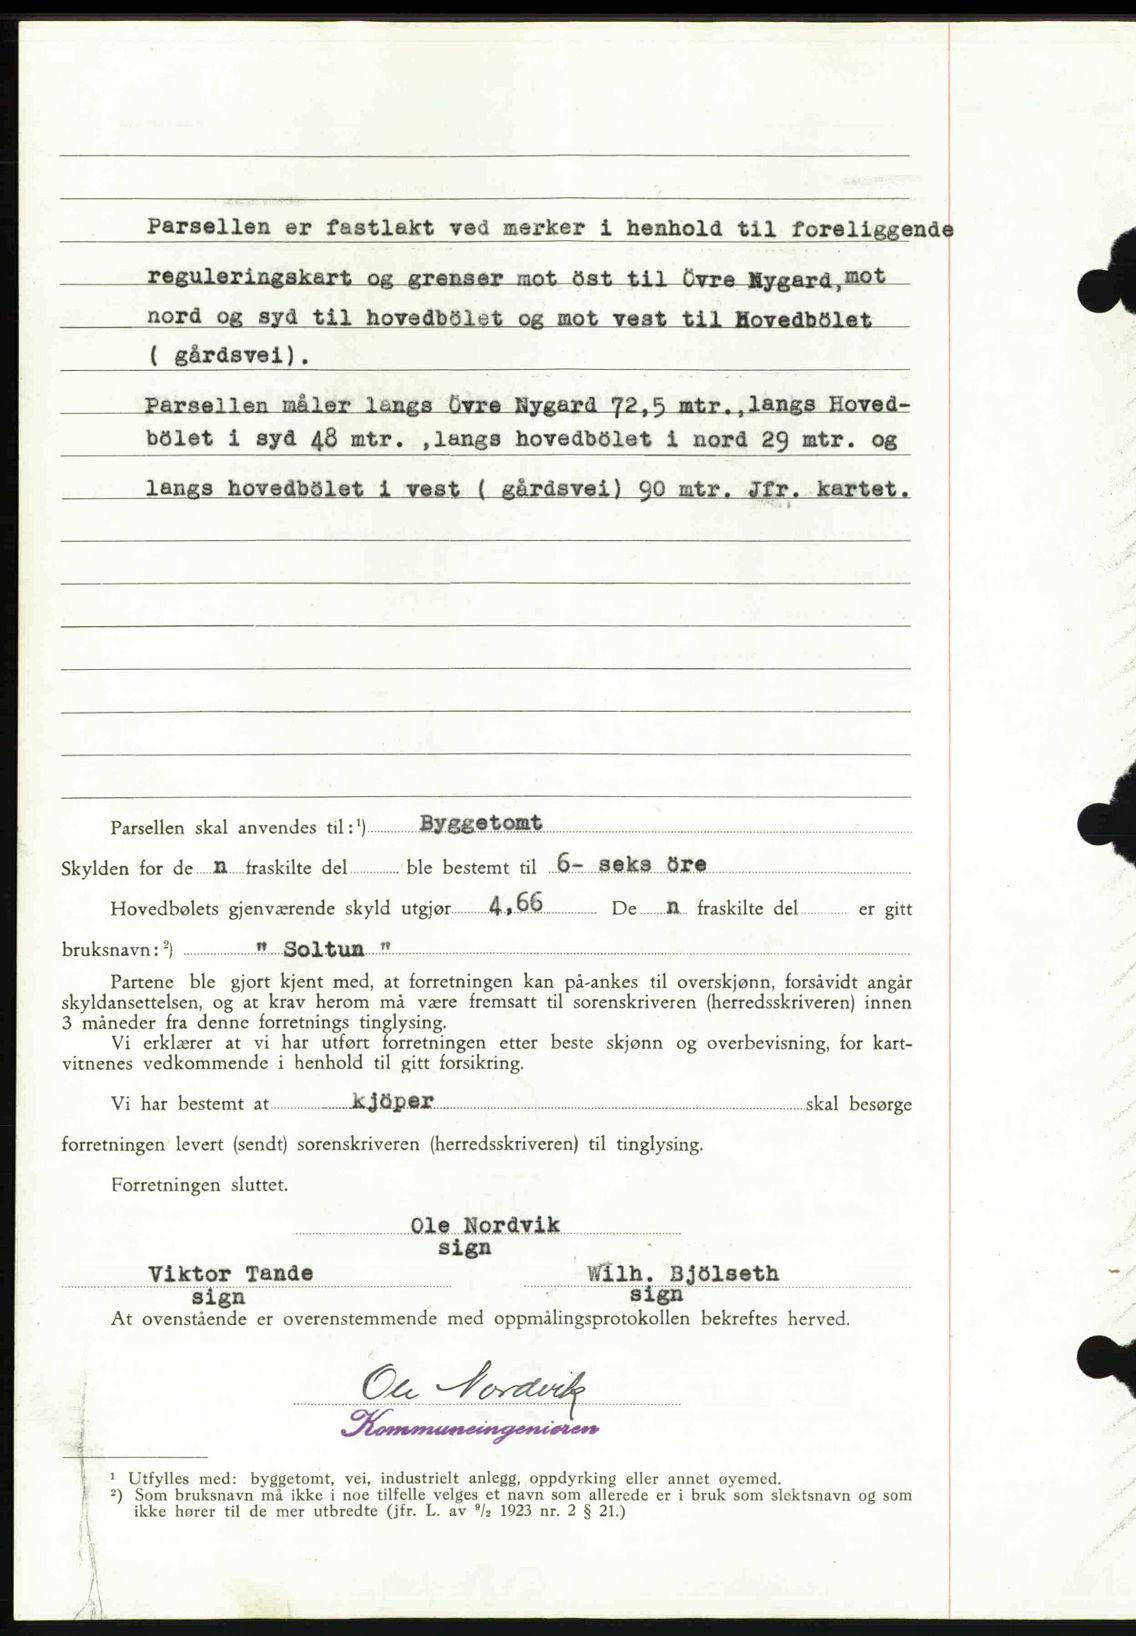 Parsellen er fastlakt ved merker i henhold til foreliggende
reguleringskart og grenser mot öst til Övre Nygard, mot
nord og syd til hovedbölet og mot vest til Hovedbölet
( gårdsvei).
Parsellen måler langs Övre Nygard 72,5 mtr.,langs Hoved-
bölet i syd 48 mtr. ,langs hovedbölet i nord 29 mtr. og
langs hovedbölet i vest ( gårdsvei) 90 mtr. Jfr. kartet.
Parsellen skal anvendes til:¹) Byggetomt
Skylden for de n fraskilte del ble bestemt til 6- seks öre
Hovedbølets gjenværende skyld utgjør 4,66 De n fraskilte del er gitt
bruksnavn: ²) " Soltun "
Partene ble gjort kjent med, at forretningen kan på-ankes til overskjønn, forsåvidt angår
skyldansettelsen, og at krav herom må være fremsatt til sorenskriveren (herredsskriveren) innen
3 måneder fra denne forretnings tinglysing.
Vi erklærer at vi har utført forretningen etter beste skjønn og overbevisning, for kart-
vitnenes vedkommende i henhold til gitt forsikring.
Vi har bestemt at kjöper skal besørge
forretningen levert (sendt) sorenskriveren (herredsskriveren) til tinglysing.
Forretningen sluttet.
Ole Nordvik
sign
Viktor Tande Wilh. Bjölseth
sign sign
At ovenstående er overenstemmende med oppmålingsprotokollen bekreftes herved.
Ole Nordvik
Kommuneingeniøren
¹ Utfylles med: byggetomt, vei, industrielt anlegg, oppdyrking eller annet øyemed.
²) Som bruksnavn må ikke i noe tilfelle velges et navn som allerede er i bruk som slektsnavn og som
ikke hører til de mer utbredte (jfr. L. av ⁹/₂ 1923 nr. 2 § 21.)